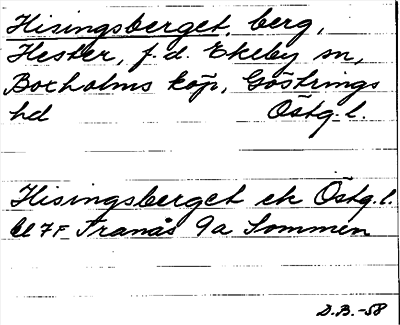 Hisingsberget, berg,
Hester, f.d. Ekeby sn,
Boxholms köp, Göstrings
hd Östg. l.
Hisingsberget ek Östg. l.
bl 7F Tranås 9a Sommen
D.B.-58